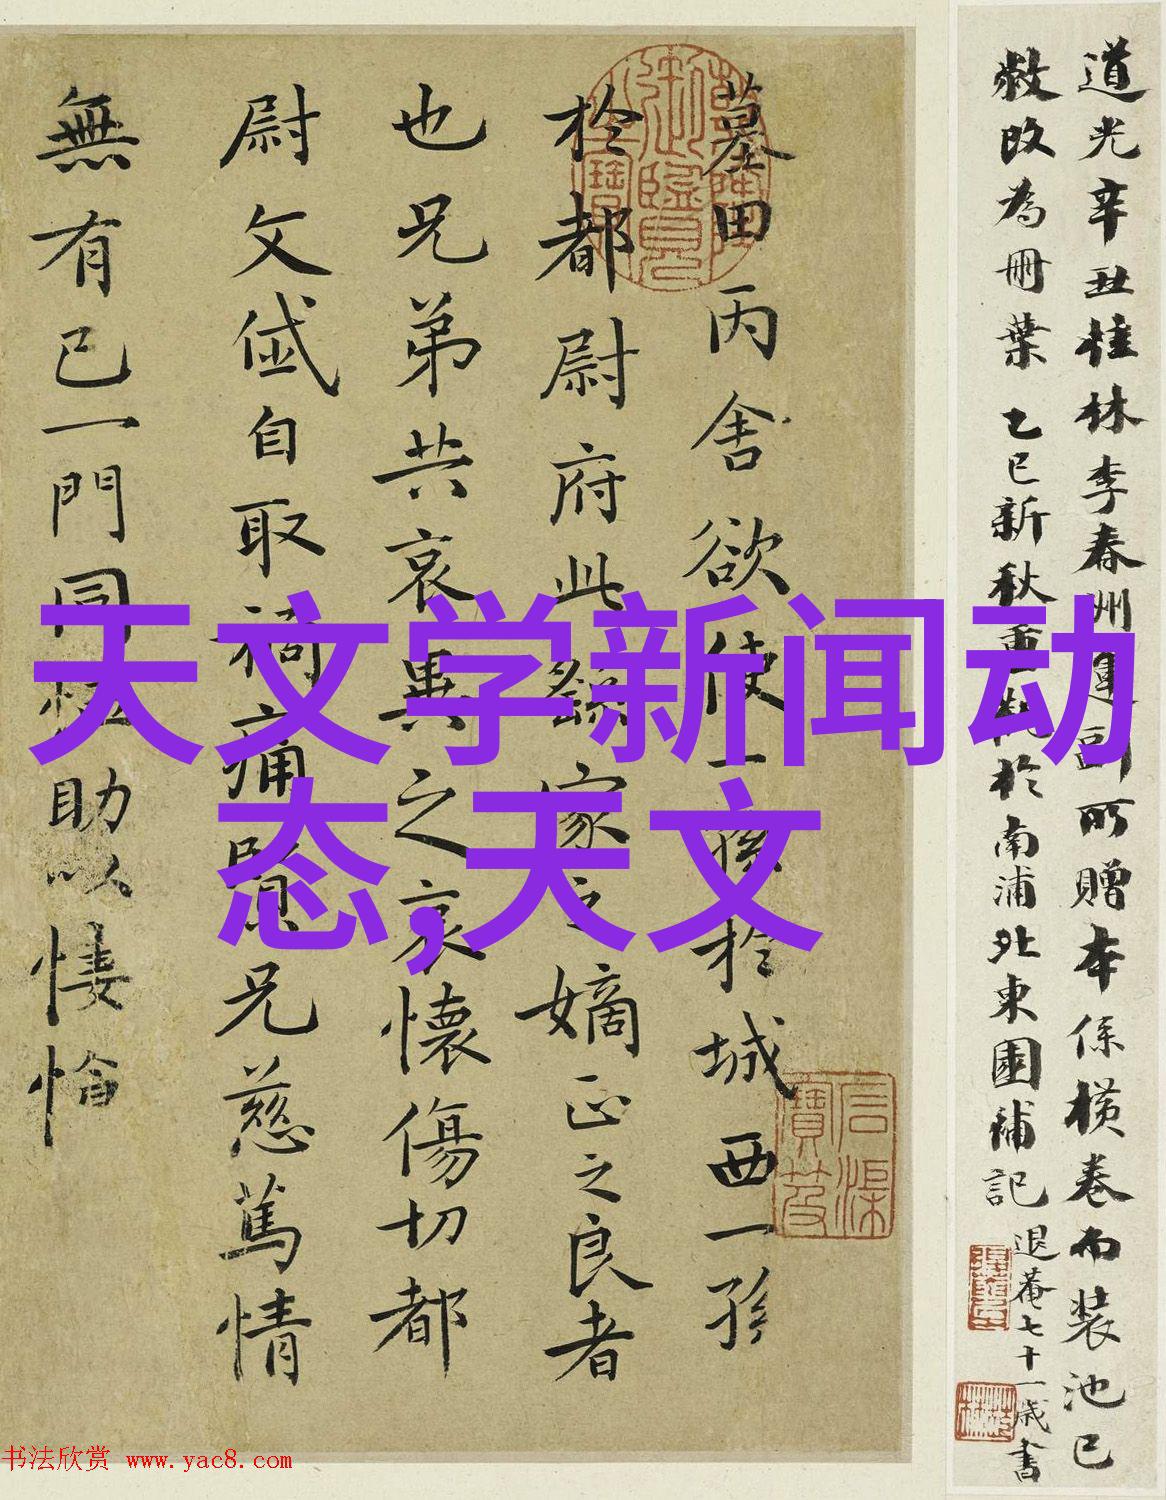 墓田丙舍欲使一孫於城西一孫
於都尉府此繇家之嫡正之良者
也兄弟共哀異之哀懷傷切都
尉文岱自取禍痛賢兄慈篤情
無有已一門同恤助以悽愴
道光辛丑桂林李春洲運副所贈本係橫卷而裝池已
敝改為冊葉乙巳新秋重裝於南浦北東園補記
退菴七十一歲書
天文学新闻动
态,天文
书法欣赏 www.yac8.com